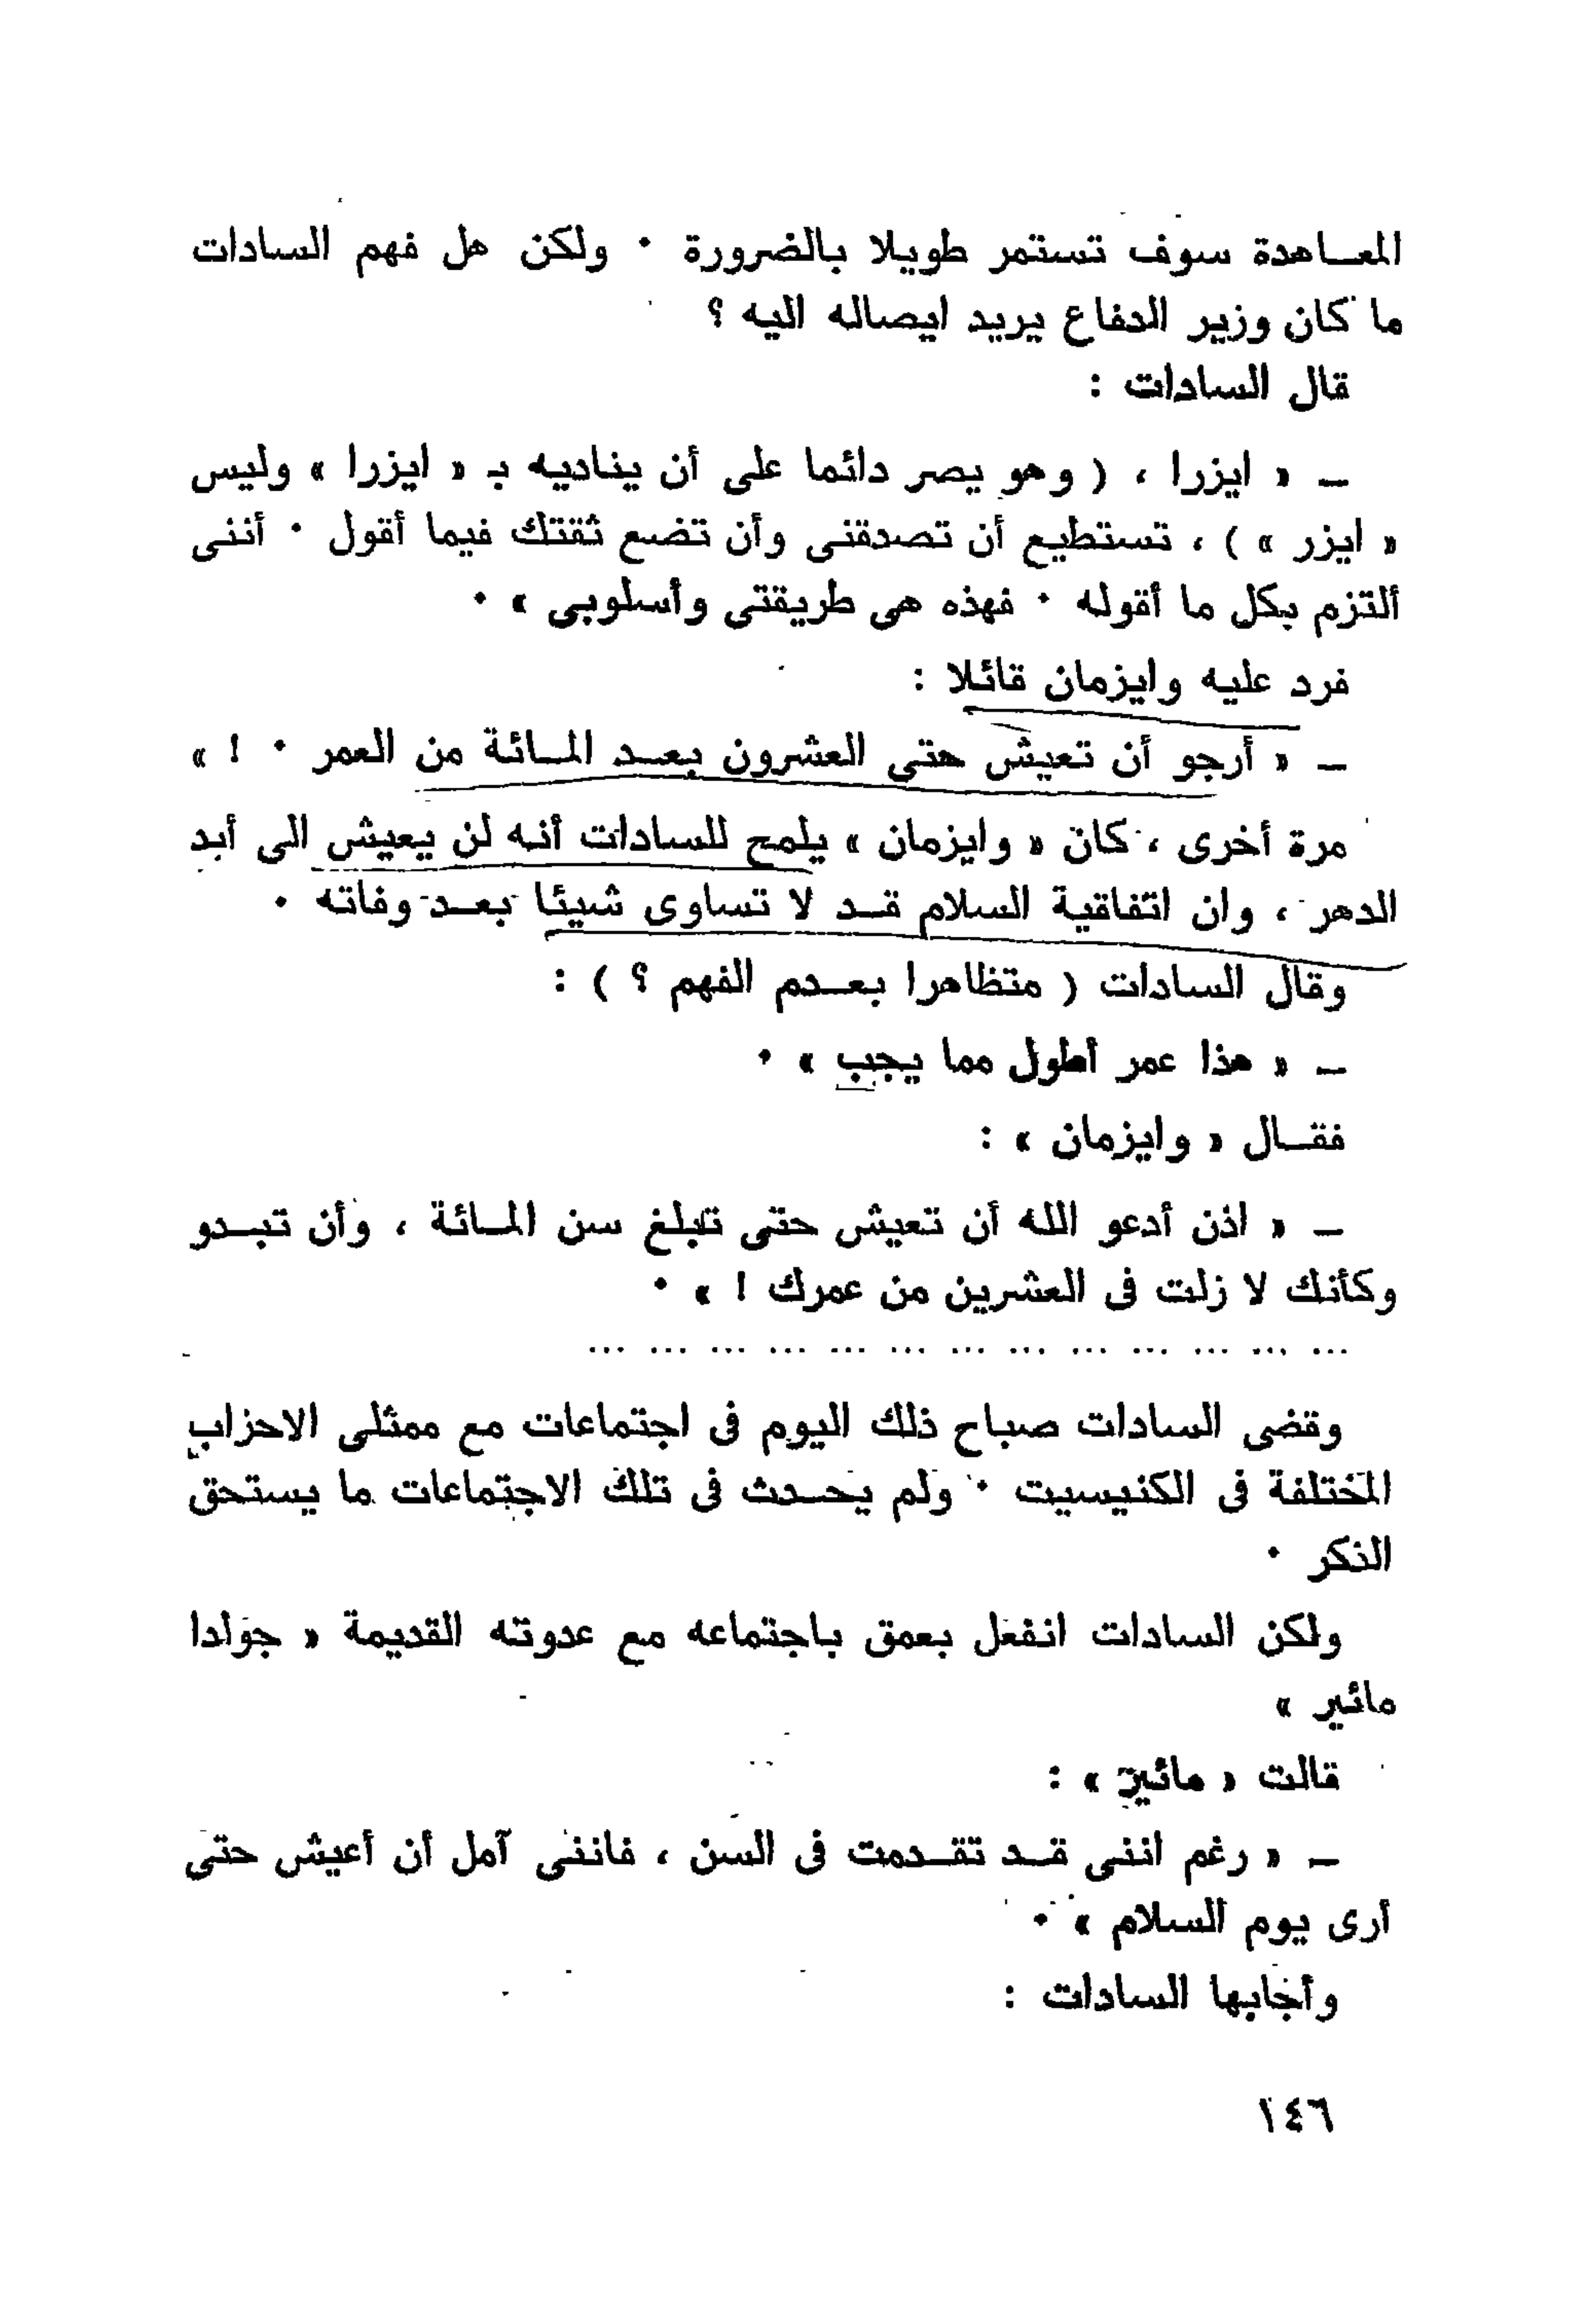 المعاهدة سوف تستمر طويلا بالضرورة . ولكن هل فهم السادات
ما كان وزير الدفاع يريد ايصاله اليه ؟
قال السادات :
ــ « ايزرا ، ( وهو يصر دائما على أن يناديه بـ « ايزرا » وليس
« ايزر » ) ، تستطيع أن تصدقنى وأن تضع ثقتك فيما أقول . أننى
ألتزم بكل ما أقوله . فهذه هى طريقتى وأسلوبى » .
فرد عليه وايزمان قائلا :
ــ « أرجو أن تعيش حتى العشرون بعد المائة من العمر . ! »
مرة أخرى ، كان « وايزمان » يلمح للسادات أنه لن يعيش الى أبد
الدهر ، وان اتفاقية السلام قد لا تساوى شيئا بعد وفاته .
وقال السادات ( متظاهرا بعدم الفهم ؟ ) :
ــ « هذا عمر أطول مما يجب » .
فقال « وايزمان » :
ــ « اذن أدعو الله أن تعيش حتى تبلغ سن المائة ، وأن تبدو
وكأنك لا زلت فى العشرين من عمرك ! » .
... ... ... ... ... ... ... ... ... ... ... ... ...
وقضى السادات صباح ذلك اليوم فى اجتماعات مع ممثلى الاحزاب
المختلفة فى الكنيسيت . ولم يحدث فى تلك الاجتماعات ما يستحق
الذكر .
ولكن السادات انفعل بعمق باجتماعه مع عدوته القديمة « جولدا
مائير »
قالت « مائير » :
ــ « رغم اننى قد تقدمت فى السن ، فاننى آمل أن أعيش حتى
أرى يوم السلام » .
وأجابها السادات :
١٤٦